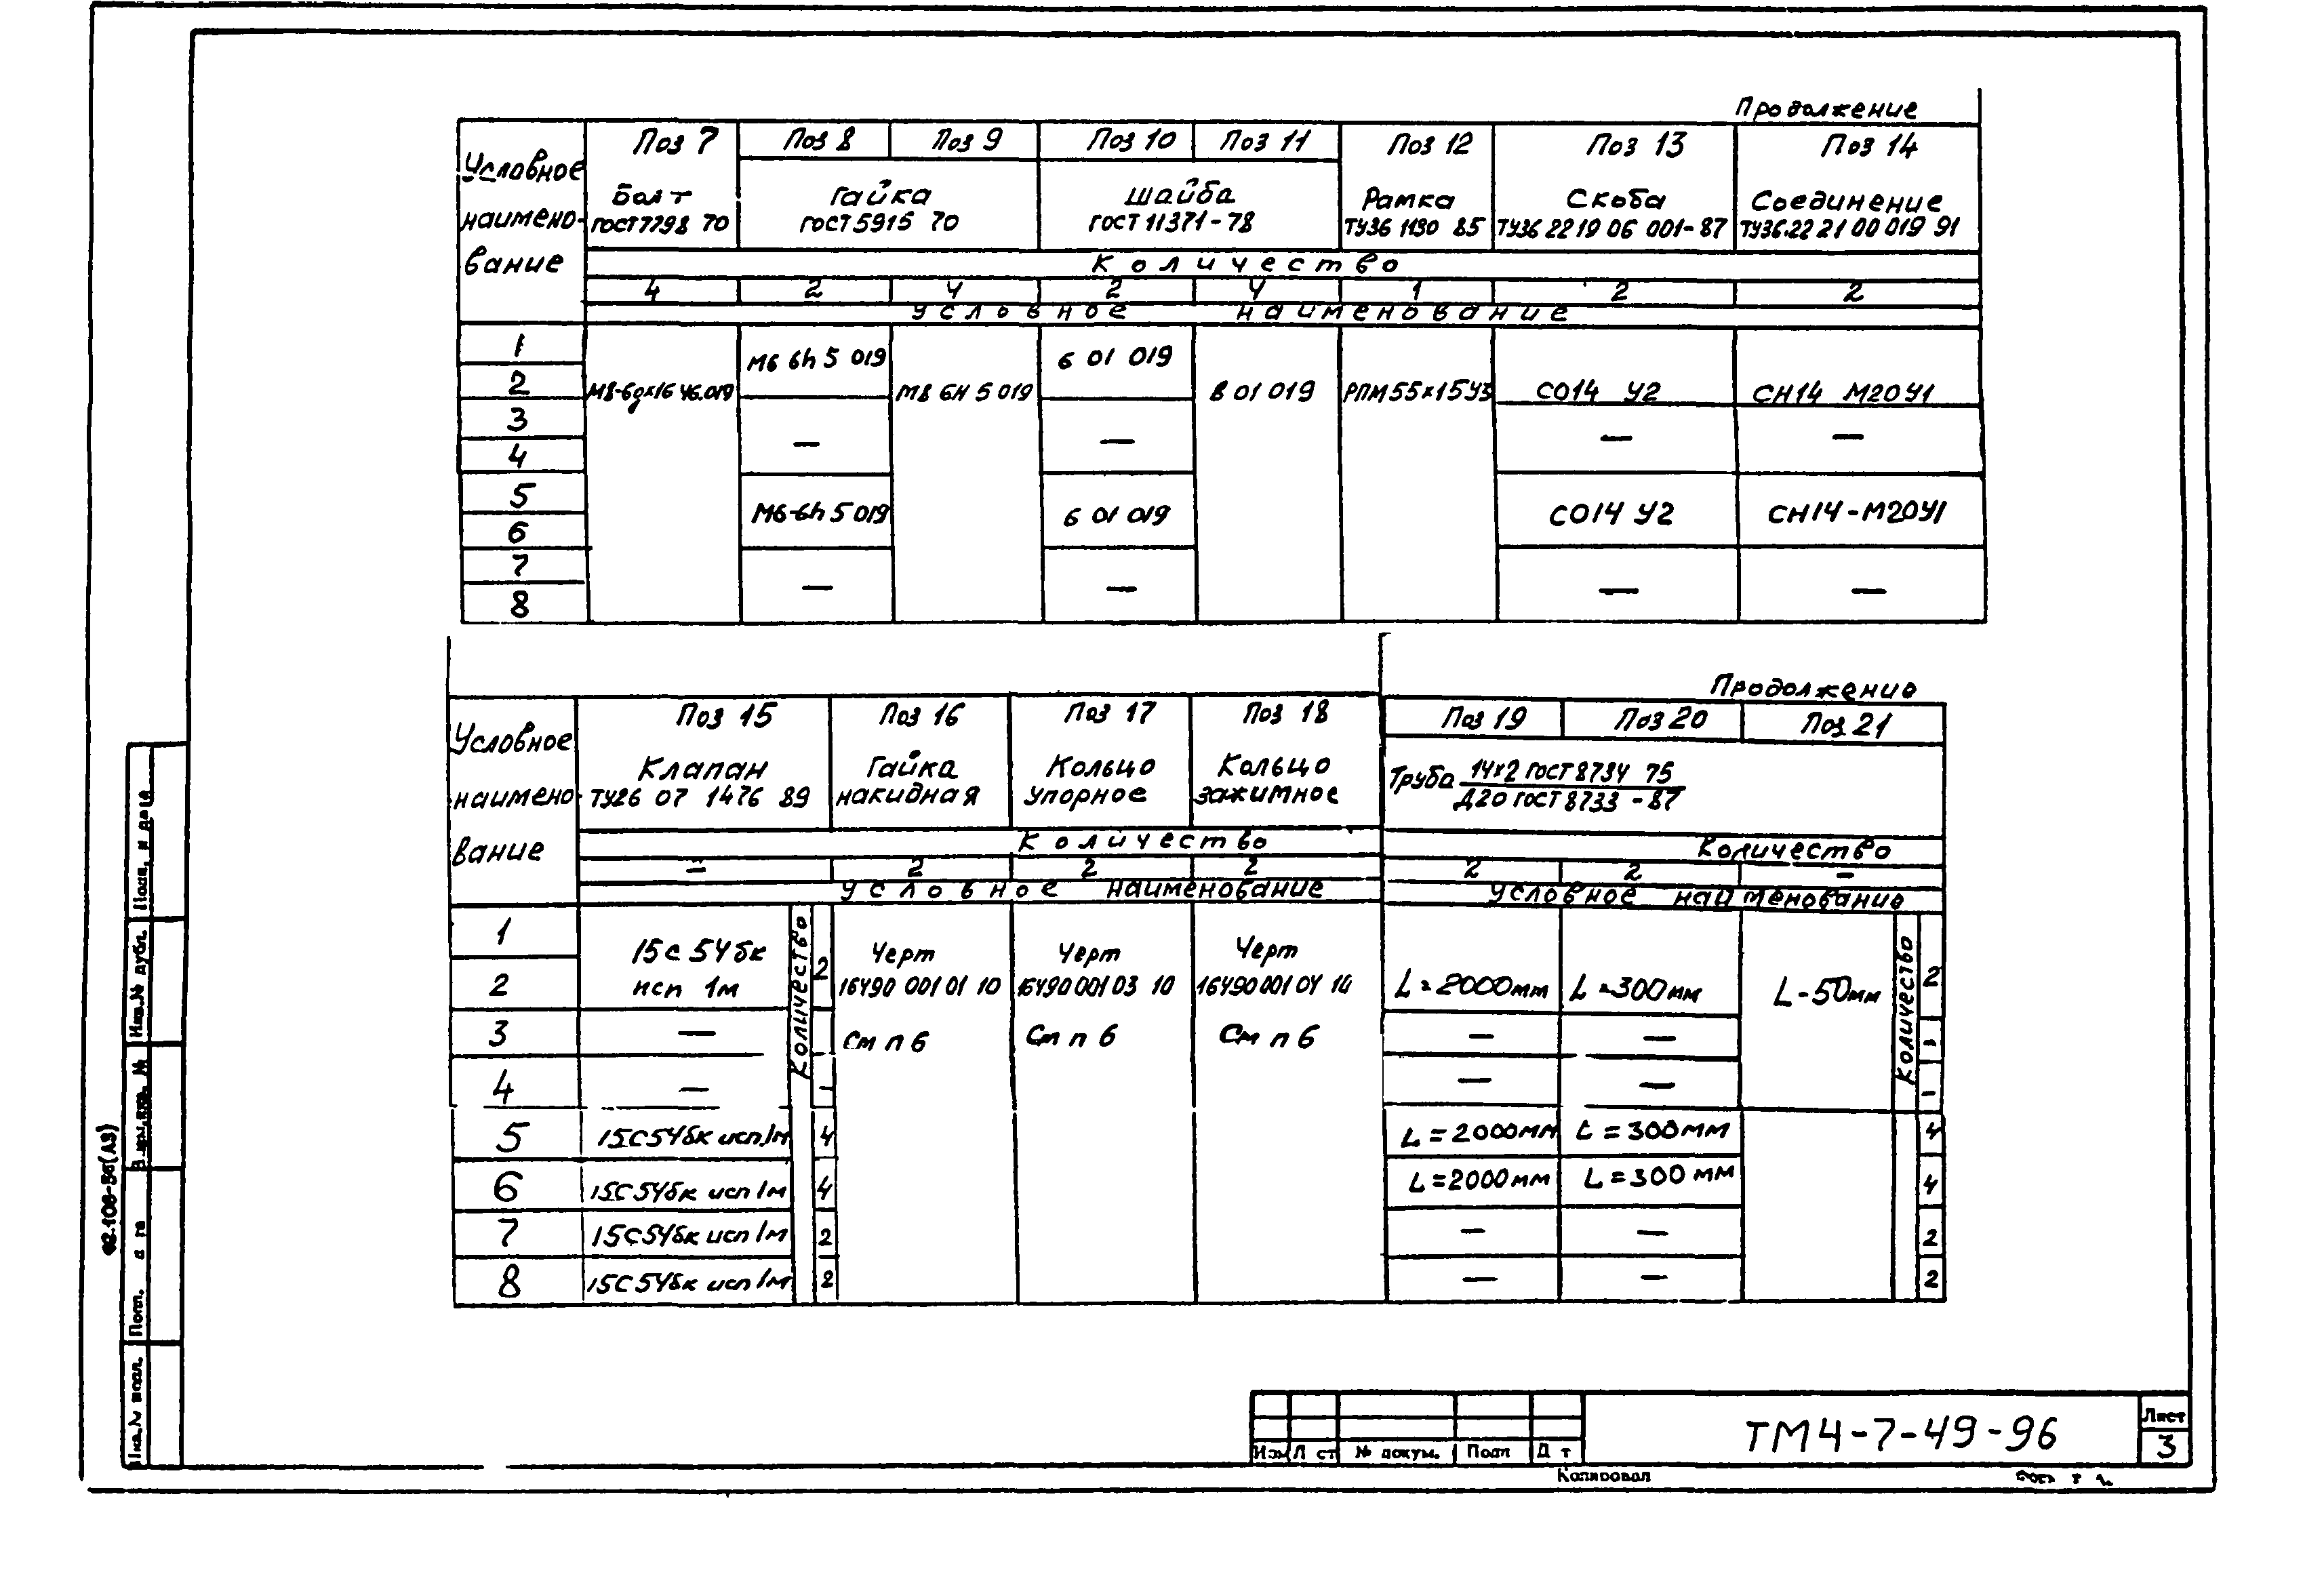 Продолжение
Условное наименование
Поз 7 Поз 8 Поз 9 Поз 10 Поз 11 Поз 12 Поз 13 Поз 14
Болт Гайка Шайба Рамка Скоба Соединение
ГОСТ 7798 70 ГОСТ 5915 70 ГОСТ 11371-78 ТУ36 1130 85 ТУ36 22 19 06 001-87 ТУ36.22 21 00 019 91
Количество
4 2 4 2 4 1 2 2
Условное наименование
1
М6 6h 5 019 6 01 019
2
М8-6gх16 46.019 М8 6Н 5 019 8 01 019 РПМ 55х15У3 СО14 У2 СН14 М20У1
3
— — — —
4
5
М6-6h 5 019 6 01 019 СО14 У2 СН14-М20У1
6
7
— — — —
8
Продолжение
Условное наименование
Поз 15 Поз 16 Поз 17 Поз 18 Поз 19 Поз 20 Поз 21
Клапан Гайка Кольцо Кольцо Труба 14х2 ГОСТ 8734 75
ТУ26 07 1476 89 накидная упорное зажимное Д20 ГОСТ 8733-87
Количество Количество
— 2 2 2 2 2 —
Условное наименование Условное наименование
Количество Количество
1
15с 54бк Черт Черт Черт
2 исп 1м 2 16490 001 01 10 16490 001 03 10 16490 001 04 10 L=2000мм L=300мм L-50мм 2
3 — См п 6 См п 6 См п 6 — — -
4 — - — — -
5 15С54бк исп 1м 4 L=2000мм L=300мм 4
6 15С54бк исп 1м 4 L=2000мм L=300мм 4
7 15С54бк исп 1м 2 — — 2
8 15С54бк исп 1м 2 — — 2
Подп. и дата
Инв.№ дубл.
Взам.инв. №
Подп.
Инв.№ подл.
Ф2.106-5б(А3)
Изм № докум. Подп
ТМ4-7-49-96
Лист
3
Копировал